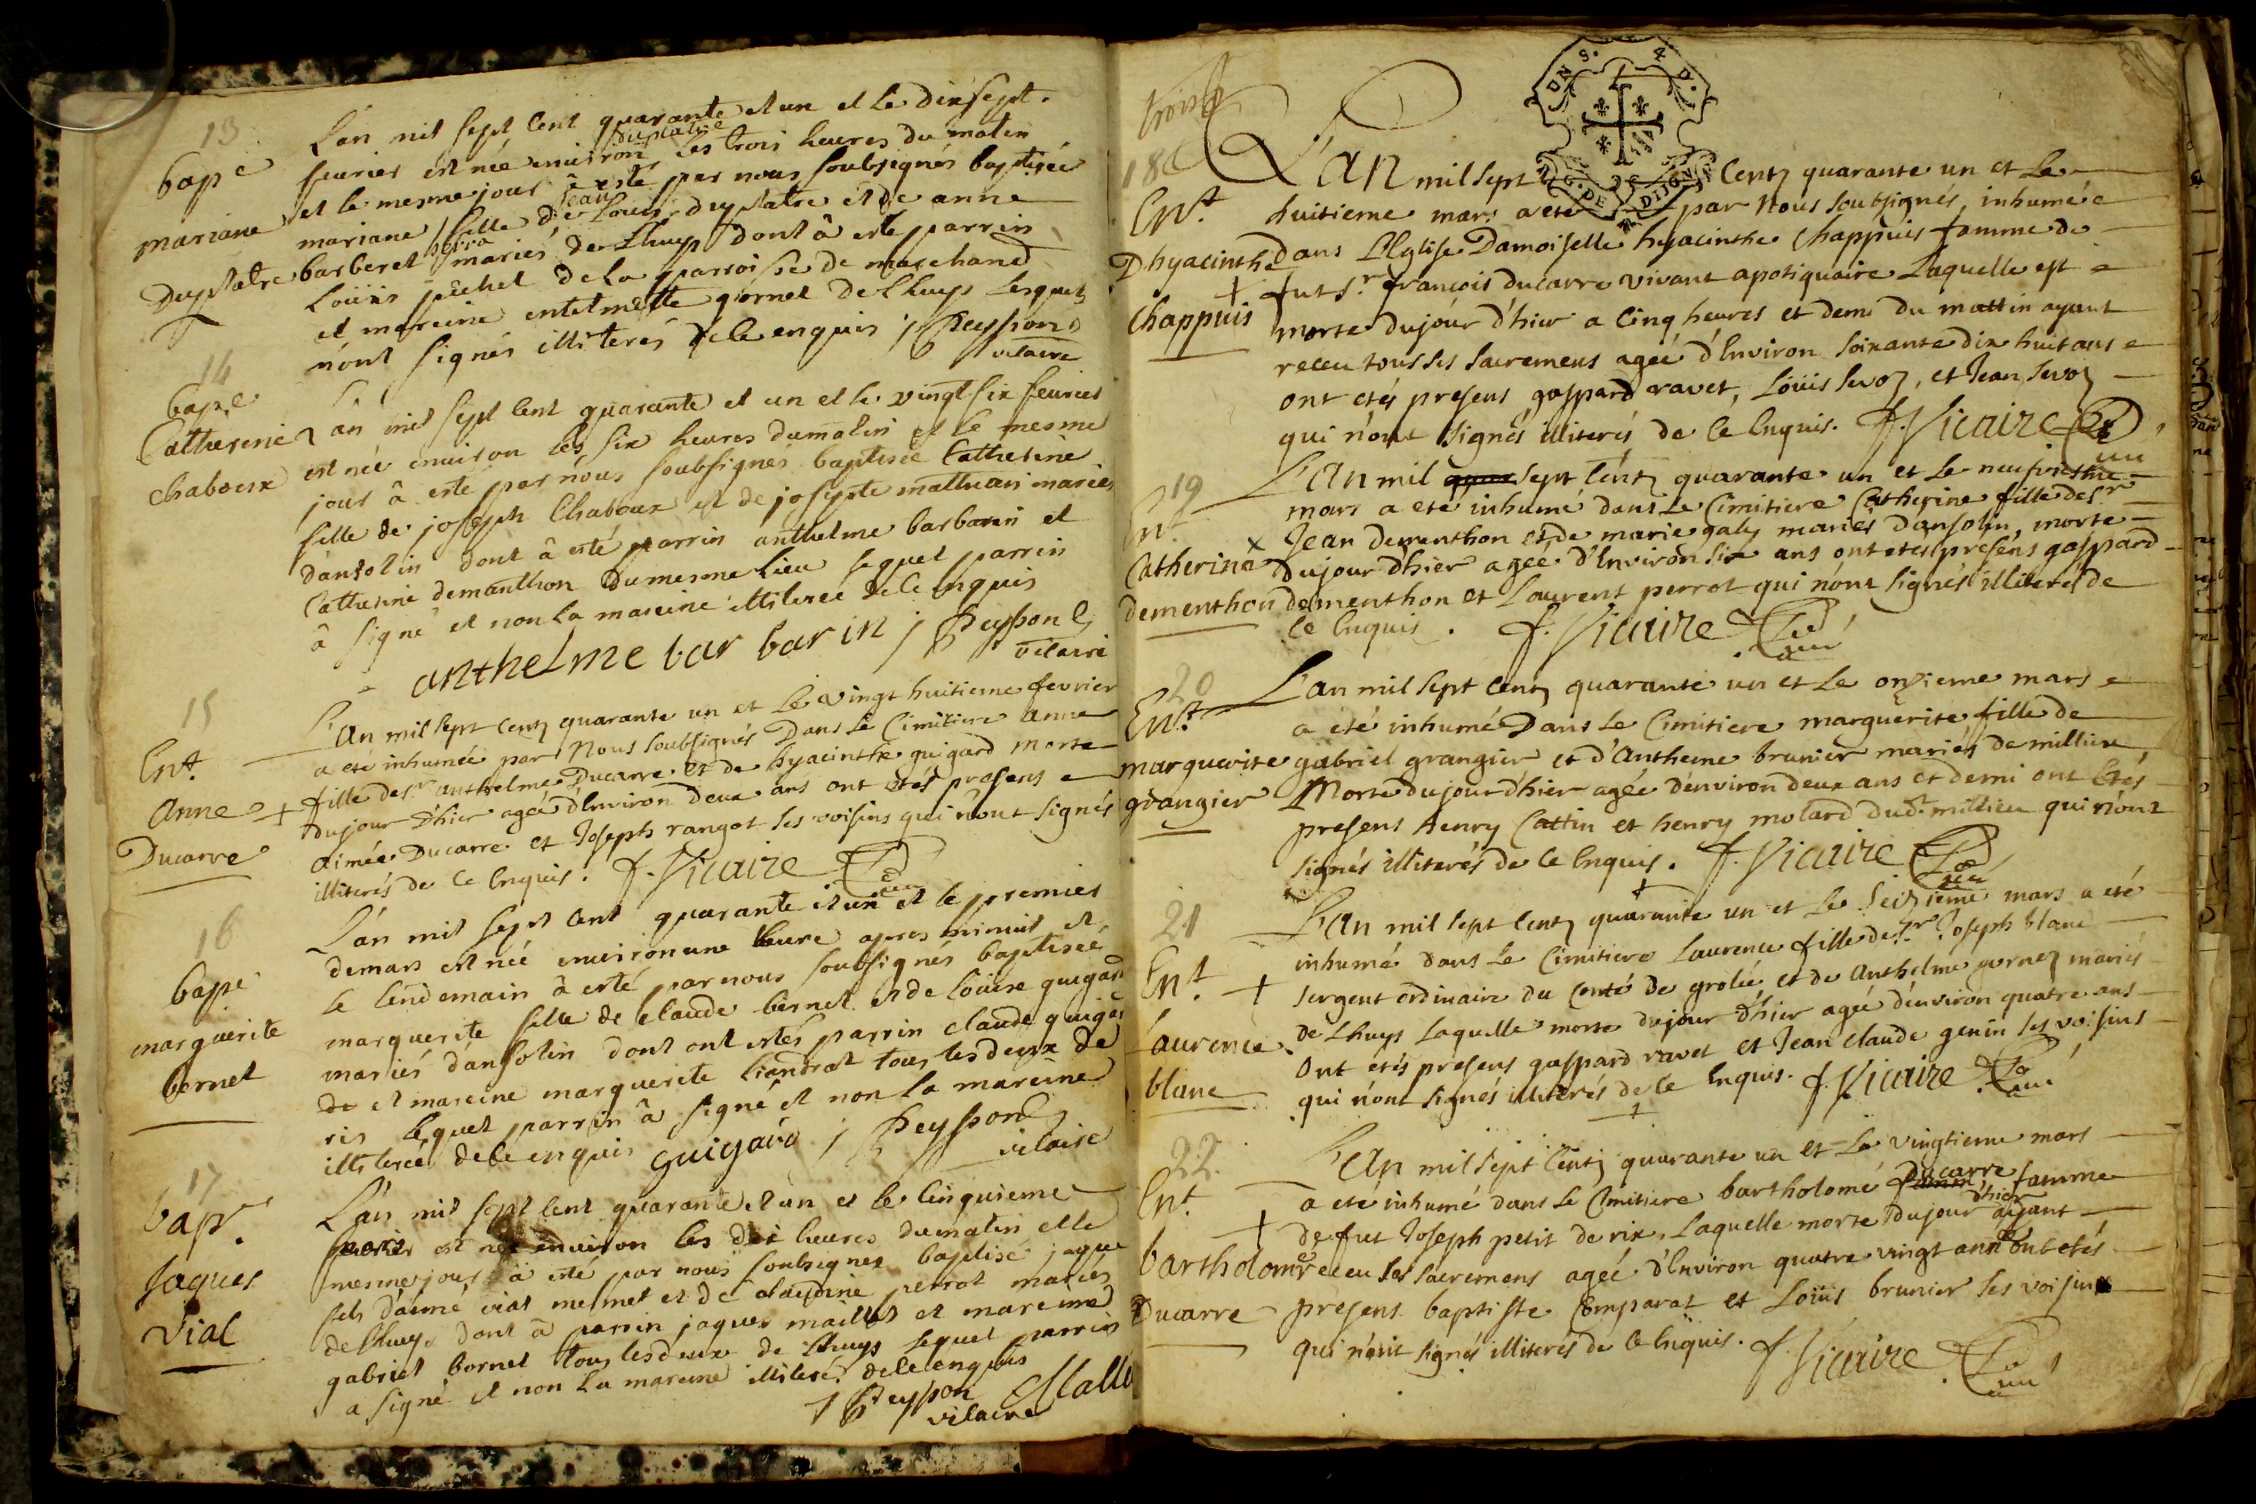 13
bap.e
mariane
Duplatre
L'an mil sept cent quarante et un et le dixsept
fevrier est née environ les trois heures du matin
duplatre
et le mesme jour à esté par nous soubsignés baptisée
mariane fille de Louis duplatre et de anne
jean
barberet mariés de Lhuys dont à esté parrin
Loüis pichet de la parroisse de marchand
et mareine entelmette gornet de Lhuys lesquels
n'ont signés illiterés de ce enquis / Peysson
vicaire
14
bap.e
Catherine
chaboux
L'an mil sept cent quarante et un et le vingt six fevrier
est née environ les six heures du matin et le mesme
jour à esté par nous soubsignes baptisée Catherine
fille de joseph Chaboux et de josepte mathian mariés
d'ansolin dont à esté parrin anthelme barbarin et
Catherine demanthon du mesme lieu lequel parrin
à signé et non la mareine illiterée de ce enquis
anthelme bar barin / Peysson
vicaire
15
Ent.
Anne +
Ducarre
L'an mil sept centz quarante un et Le vingt huitieme fevrier
a eté inhumée par Nous soubsignés Dans Le Cimitiere Anne
fille de sr anthelme Ducarre et de hyacinthe guigard Morte
dujour d'hier ageé d'Environ deux ans ont etés presens
aimée Ducarre et Joseph rangot ses voisins qui n'ont signés
illiterés de Ce Enquis. f. Vicaire
16
bap.e
marguerite
bornet
L'an mil sept cent quarante et un et le premier
de mars est née environ une heure apres minuit et
le lendemain à esté par nous soubsignés baptiseé
marguerite fille de claude bornet et de loüise guigard
mariés d'ansolin dont ont estés parrin claude guigar
de et mareine marguerite liandrat tous les deux de
rix lequel parrin à signé et non la mareine
illiterée de ce enquis guigard / Peysson
vicaire
17
bap.
Jaques
Vial
L'an mil sept cent quarante et un et le cinquieme
mars est né environ les dix heures du matin et le
mesme jour à esté par nous soubsignes baptisé jaque
fils d'aimé vial mesmet et de claudine perrot mariés
de Lhuys dont à parrin jaques maillet et mareine
gabriel bornet tous les deux de Lhuys lequel parrin
a signé et non la mareine illiterée de ce enquis
/ Peysson Malle
vicaire
troisi
G. DE DIJON
18
Ent.
D hyacinthe
+
Chappuis
L'AN mil sept Centz quarante un et Le
huitieme mars a eté par Nous soubsignés, inhumé
dans L'Eglise Damoiselle hyacinthe Chappuis famme de
fut Sr françois ducarre vivant apotiquaire Laquelle est
morte dujour d'hier a Cinq heures et demi du mattin ayant
receu tous ses sacremens ageé d'Environ soixante dix huit ans
ont etés presens gaspard ravet, Loüis sevoz, et Jean sevoz
qui n'ont signés illiterés de Ce Enquis. f. Vicaire
19
Ent.
Catherine x
dementhon
L'an mil sept Centz quarante un et Le neufviesme
mars a eté inhumé dans Le Cimitiere Catherine fille de sr
Jean dementhon et de marie galy mariés d'ansolin, morte
dujour d'hier ageé d'Environ six ans ont etes presens gaspard
dementhon et Laurent perrot qui n'ont signés illiterés de
Ce Enquis. f. Vicaire
20
Ent.
marguerite
grangier
L'an mil sept Centz quarante un et Le onzieme mars
a eté inhumé Dans Le Cimitiere marguerite fille de
gabriel grangier et d'Antheme brunier mariés de millieu
Morte dujour d'hier ageé d'environ deux ans et demi ont Etés
presens henry Cattin et henry molard dud.t millieu qui n'ont
signés illiterés de Ce Enquis. f. Vicaire
21
Ent. +
Laurence
blanc
L'an mil sept Centz quarante un et Le seizieme mars a eté
inhumé dans Le Cimitiere Laurence fille de sr Joseph blanc
sergent ordinaire du Conté de groleé et de Anthelme gornez mariés
de Lhuys Laquelle morte dujour d'hier ageé d'environ quatre ans
Ont etés presens gaspard ravet et Jean claude genin ses voisins
qui n'ont signés illiterés de Ce Enquis. f. Vicaire
22.
Ent.
+
bartholomé
Ducarre
L'An mil sept Centz quarante un et Le vingtieme mars
a eté inhumé dans Le Cimitiere bartholomé Ducarre famme
de fut Joseph petit de rix, Laquelle morte dujour d'hier ayant
receu les sacremens ageé d'Environ quatre vingt ans ont etés
presens baptiste Comparat et Loüis brunier ses voisins
qui n'ont signés illiterés de Ce Enquis. f. Vicaire